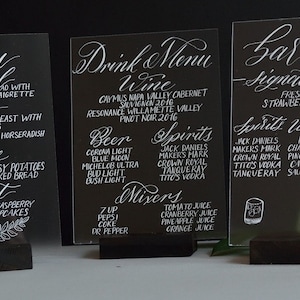 AD WITH
AIGRETTE
EAST WITH
HORSERADISH
Y POTATOES
KED BREAD
RASPBERRY
PCAKES
Drink Menu
Wine
CAYMUS NAPA VALLEY CABERNET
SAUVIGNON 2016
RESONANCE WILLAMETTE VALLEY
PINOT NOIR 2016
Beer
CORONA LIGHT
BLUE MOON
MICHELOB ULTRA
BUD LIGHT
BUSH LIGHT
Spirits
JACK DANIELS
MAKERS MARK
CROWN ROYAL
TANQUERAY
TITO'S VODKA
Mixers
7 UP
PEPSI
COKE
DR PEPPER
TOMATO JUICE
CRANBERRY JUICE
PINEAPPLE JUICE
ORANGE JUICE
bar
signa
FRES
STRAWBE
Spirits
JACK DANIELS
MAKERS MARK
CROWN ROYAL
TITO'S VODKA
TANQUERAY